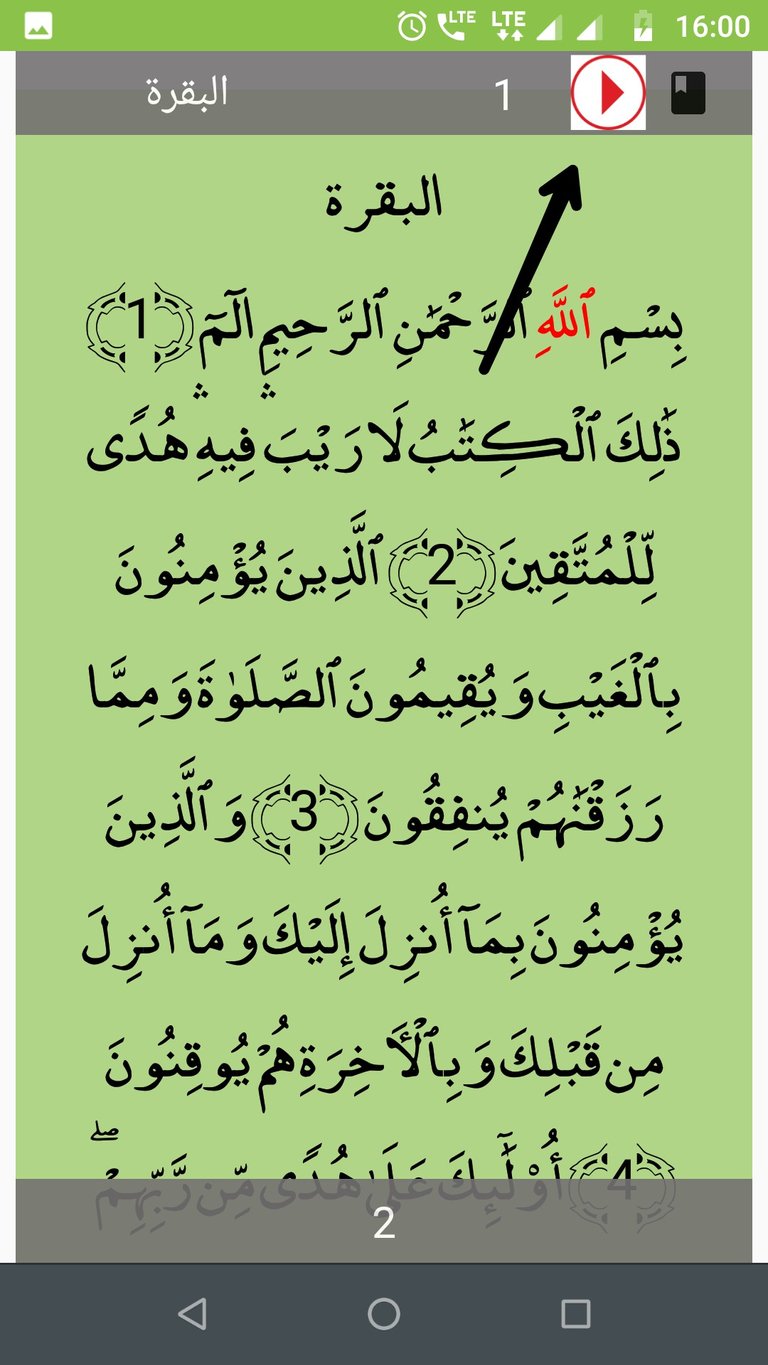 LTE LTE 16:00
البقرة 1
البقرة
بِسْمِ ٱللَّهِ ٱلرَّحْمَٰنِ ٱلرَّحِيمِ الٓمٓ 1
ذَٰلِكَ ٱلْكِتَٰبُ لَا رَيْبَ فِيهِ هُدًى
لِّلْمُتَّقِينَ 2 ٱلَّذِينَ يُؤْمِنُونَ
بِٱلْغَيْبِ وَيُقِيمُونَ ٱلصَّلَوٰةَ وَمِمَّا
رَزَقْنَٰهُمْ يُنفِقُونَ 3 وَٱلَّذِينَ
يُؤْمِنُونَ بِمَآ أُنزِلَ إِلَيْكَ وَمَآ أُنزِلَ
مِن قَبْلِكَ وَبِٱلْأَخِرَةِ هُمْ يُوقِنُونَ
4 أُوْلَٰٓئِكَ عَلَىٰ هُدًى مِّن رَّبِّهِمْ ۖ
2